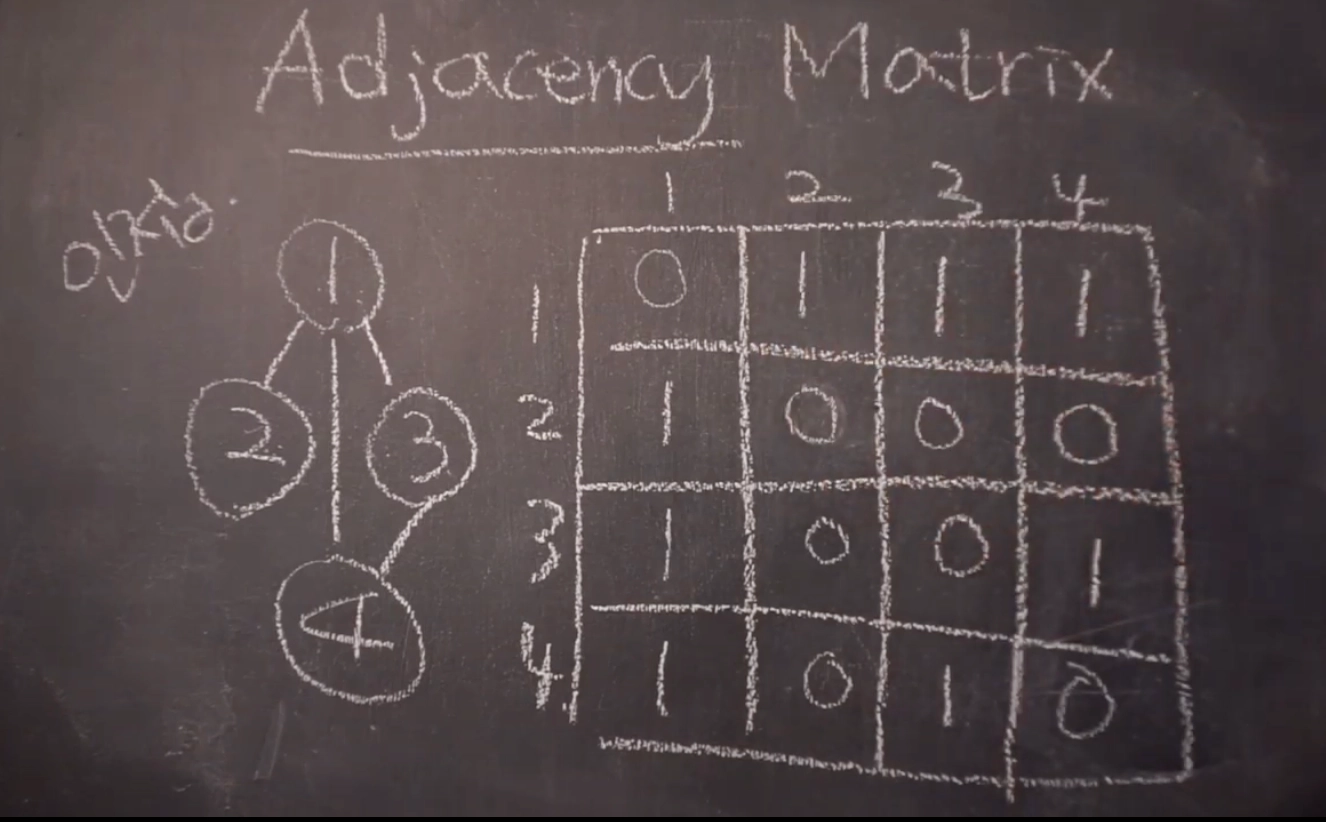 Adjacency Matrix
1 2 3 4
1
1 0 1 1 1
2 3
2 1 0 0 0
3 1 0 0 1
4
4 1 0 1 0